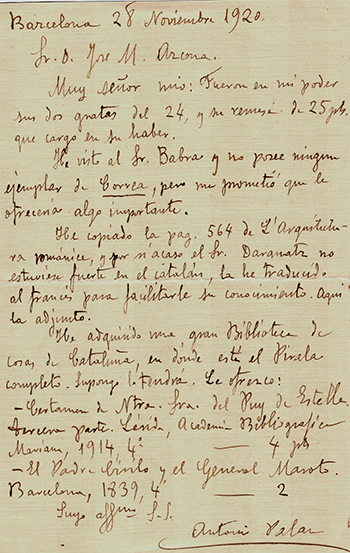 Barcelona 28 Noviembre 1920.
Sr. D. José M. Azcona.
Muy señor mio: Fueron en mi poder
sus dos gratas del 24, y su remesa de 25 pts.
que cargo en su haber.
He visto al Sr. Babra y no posee ningun
ejemplar de Correa, pero me prometió que le
ofreceria algo importante.
He copiado la pag. 564 de L'Arquitectu-
ra románica, y por si acaso el Sr. Daranatz no
estuviese fuerte en el catalán, la he traducido
al francés para facilitarle su conocimiento. Aqui
la adjunto.
He adquirido una gran Biblioteca de
cosas de Cataluña, en donde está el Pirala
completo. Supongo l. tendrá. Le ofrezco:
- Certamen de Ntra. Sra. del Puy de Estella.
tercera parte. Lérida, Academia Bibliografica
Mariana, 1914 4º — 4 pts.
- El Padre Cirilo y el General Maroto.
Barcelona, 1839, 4º — 2
Suyo affmo S.S.
Antonio Palau